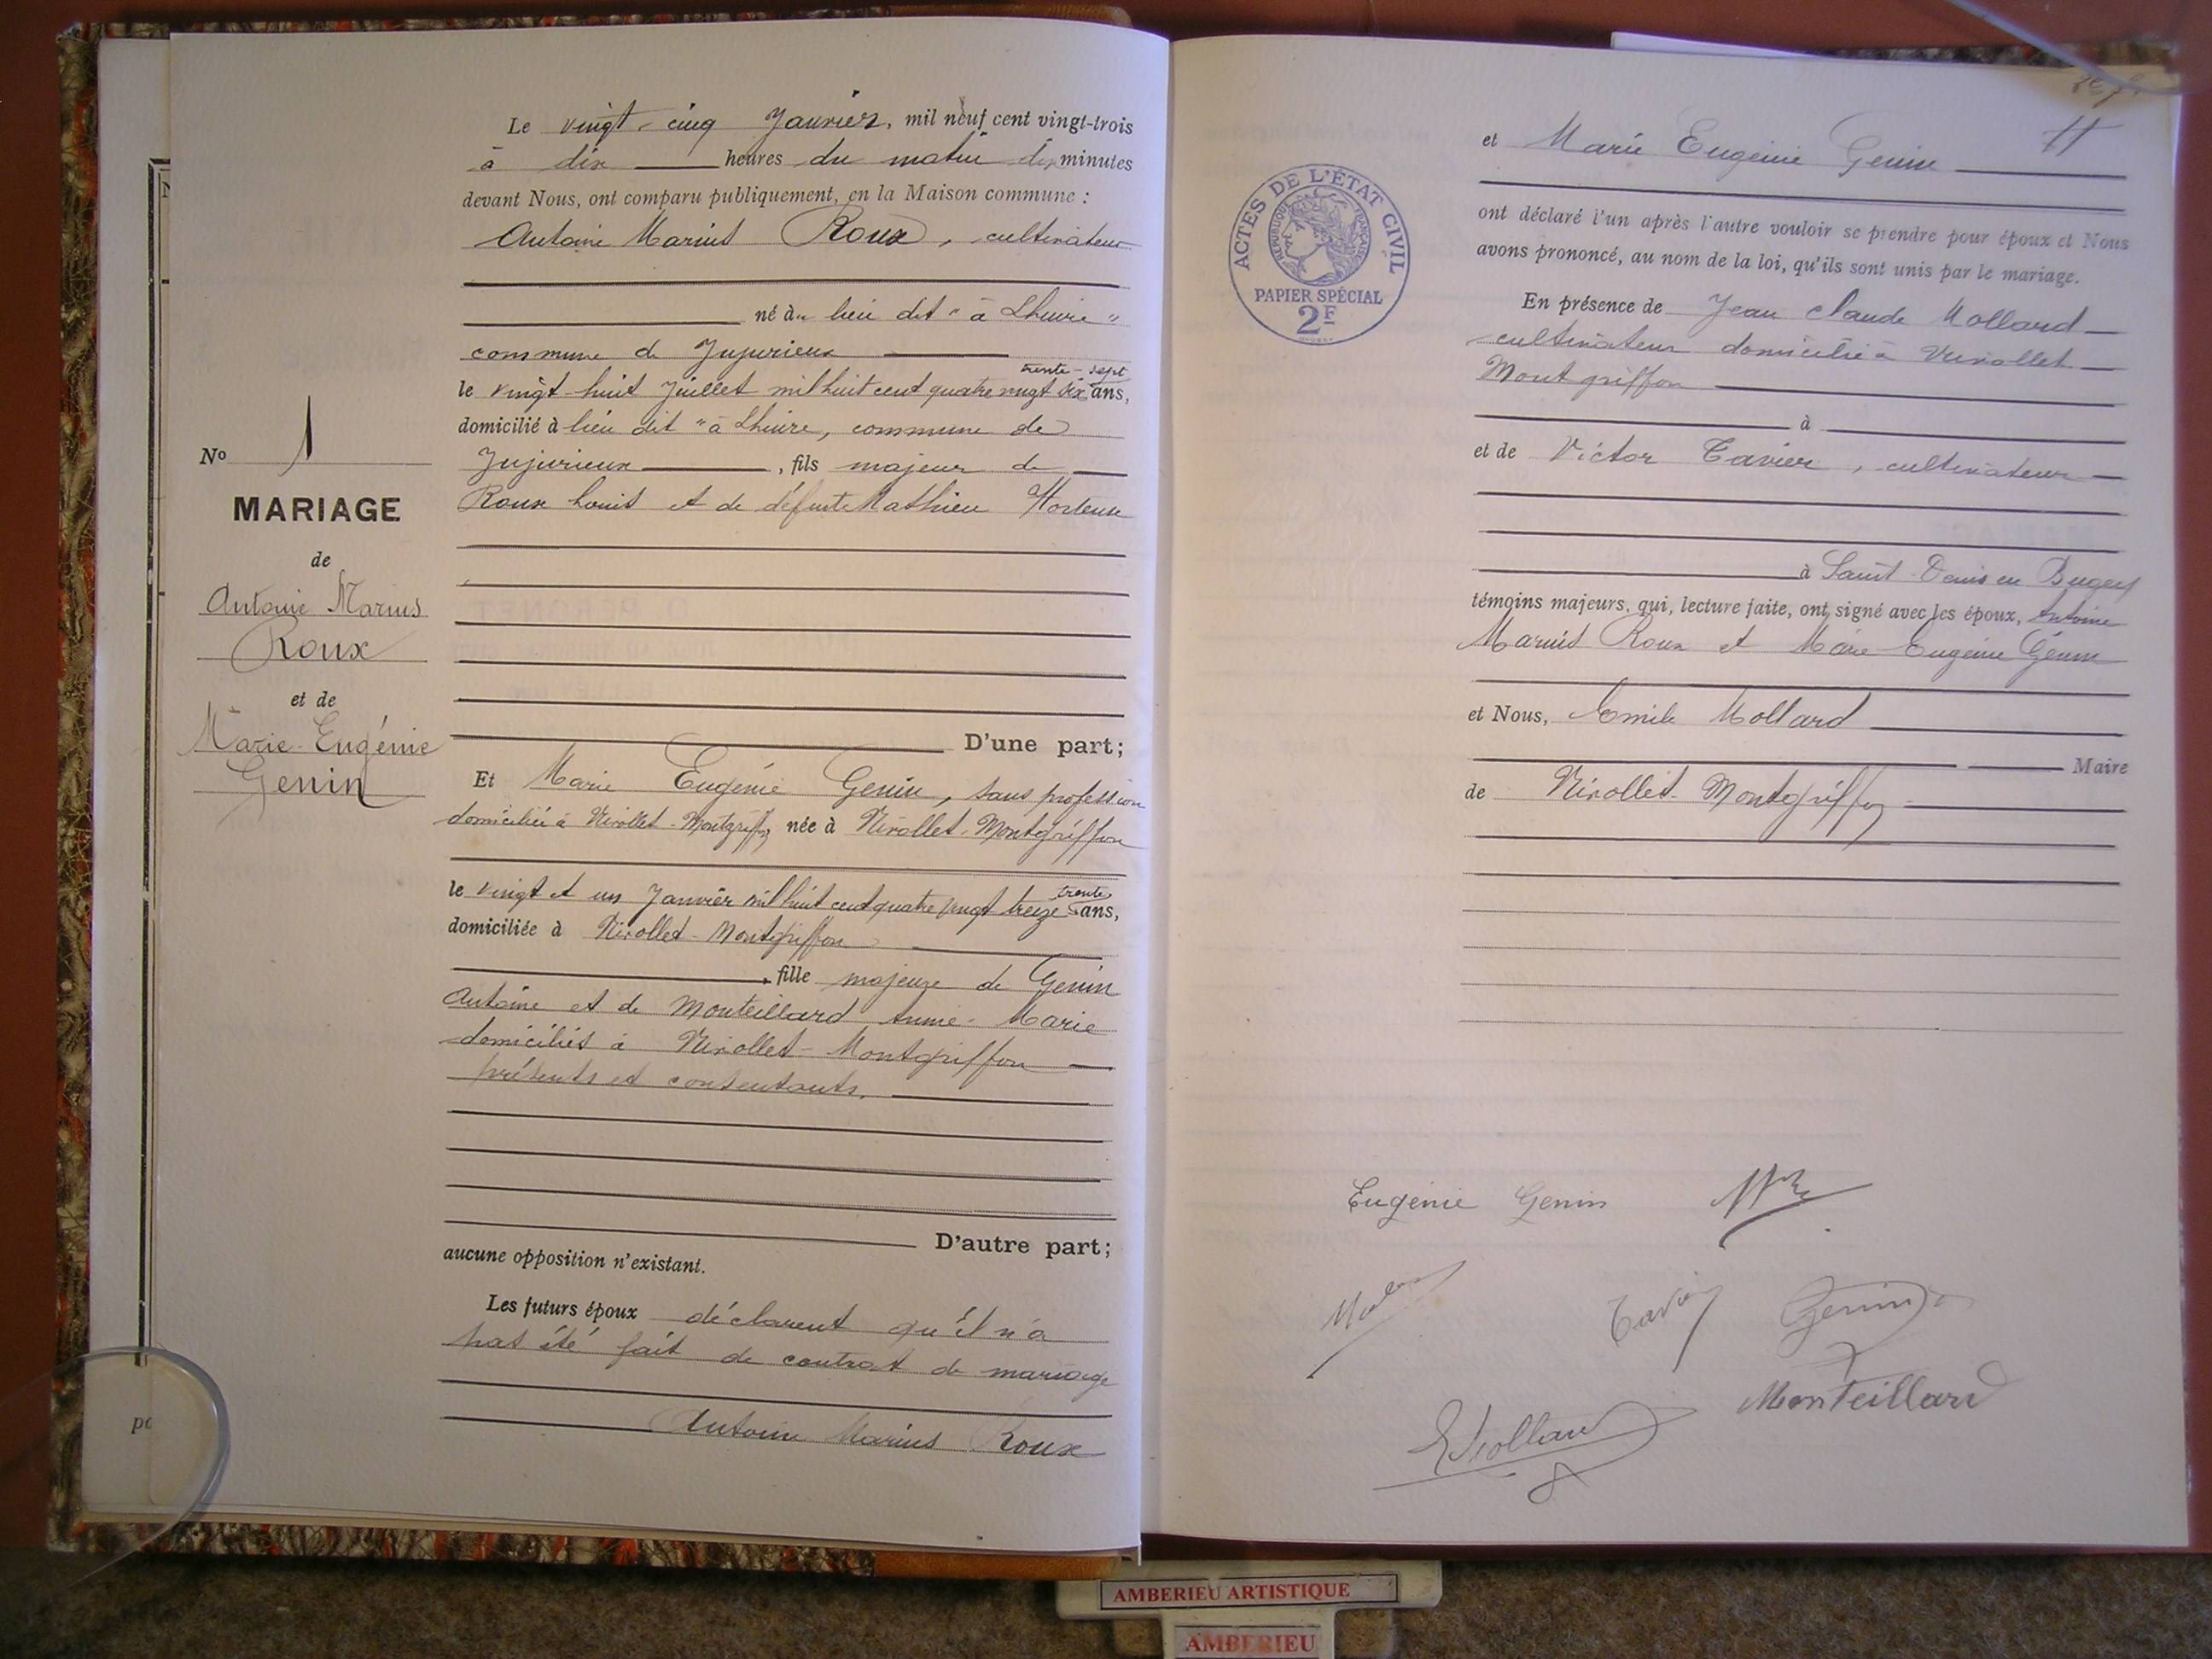 Le vingt-cinq Janvier, mil neuf cent vingt-trois
à dix heures du matin dix minutes
devant Nous, ont comparu publiquement, en la Maison commune :
Antoine Marius Roux, cultivateur
né au lieu dit "à Lhuire"
commune de Jujurieux
trente-sept
le vingt-huit Juillet mil huit cent quatre vingt six ans,
domicilié à lieu dit "à Lhuire, commune de
Jujurieux, fils majeur de
Roux Louis et de défunte Mathieu Hortense
No 1
MARIAGE
de
Antoine Marius
Roux
et de
Marie-Eugénie
Genin
D'une part;
Et Marie Eugénie Genin, sans profession
domiciliée à Nivollet-Montgriffon née à Nivollet-Montgriffon
trente
le vingt et un Janvier mil huit cent quatre vingt treize ans,
domiciliée à Nivollet-Montgriffon
, fille majeure de Genin
Antoine et de Monteillard Anne-Marie
domiciliés à Nivollet-Montgriffon
présents et consentants.
D'autre part;
aucune opposition n'existant.
Les futurs époux déclarent qu'il n'a
pas été fait de contrat de mariage
Antoine Marius Roux
et Marie Eugénie Genin
ACTES DE L'ÉTAT CIVIL
RÉPUBLIQUE FRANÇAISE
PAPIER SPÉCIAL
2F
ont déclaré l'un après l'autre vouloir se prendre pour époux et Nous
avons prononcé, au nom de la loi, qu'ils sont unis par le mariage.
En présence de Jean Claude Mollard
cultivateur domicilié à Nivollet
Montgriffon
à
et de Victor Tavier, cultivateur
à Saint-Denis en Bugey
témoins majeurs, qui, lecture faite, ont signé avec les époux, Antoine
Marius Roux et Marie-Eugénie Genin
et Nous, Emile Mollard
Maire
de Nivollet-Montgriffon
Eugénie Genin
Tavier Genin
Monteillard
EMollard
AMBERIEU ARTISTIQUE
AMBERIEU